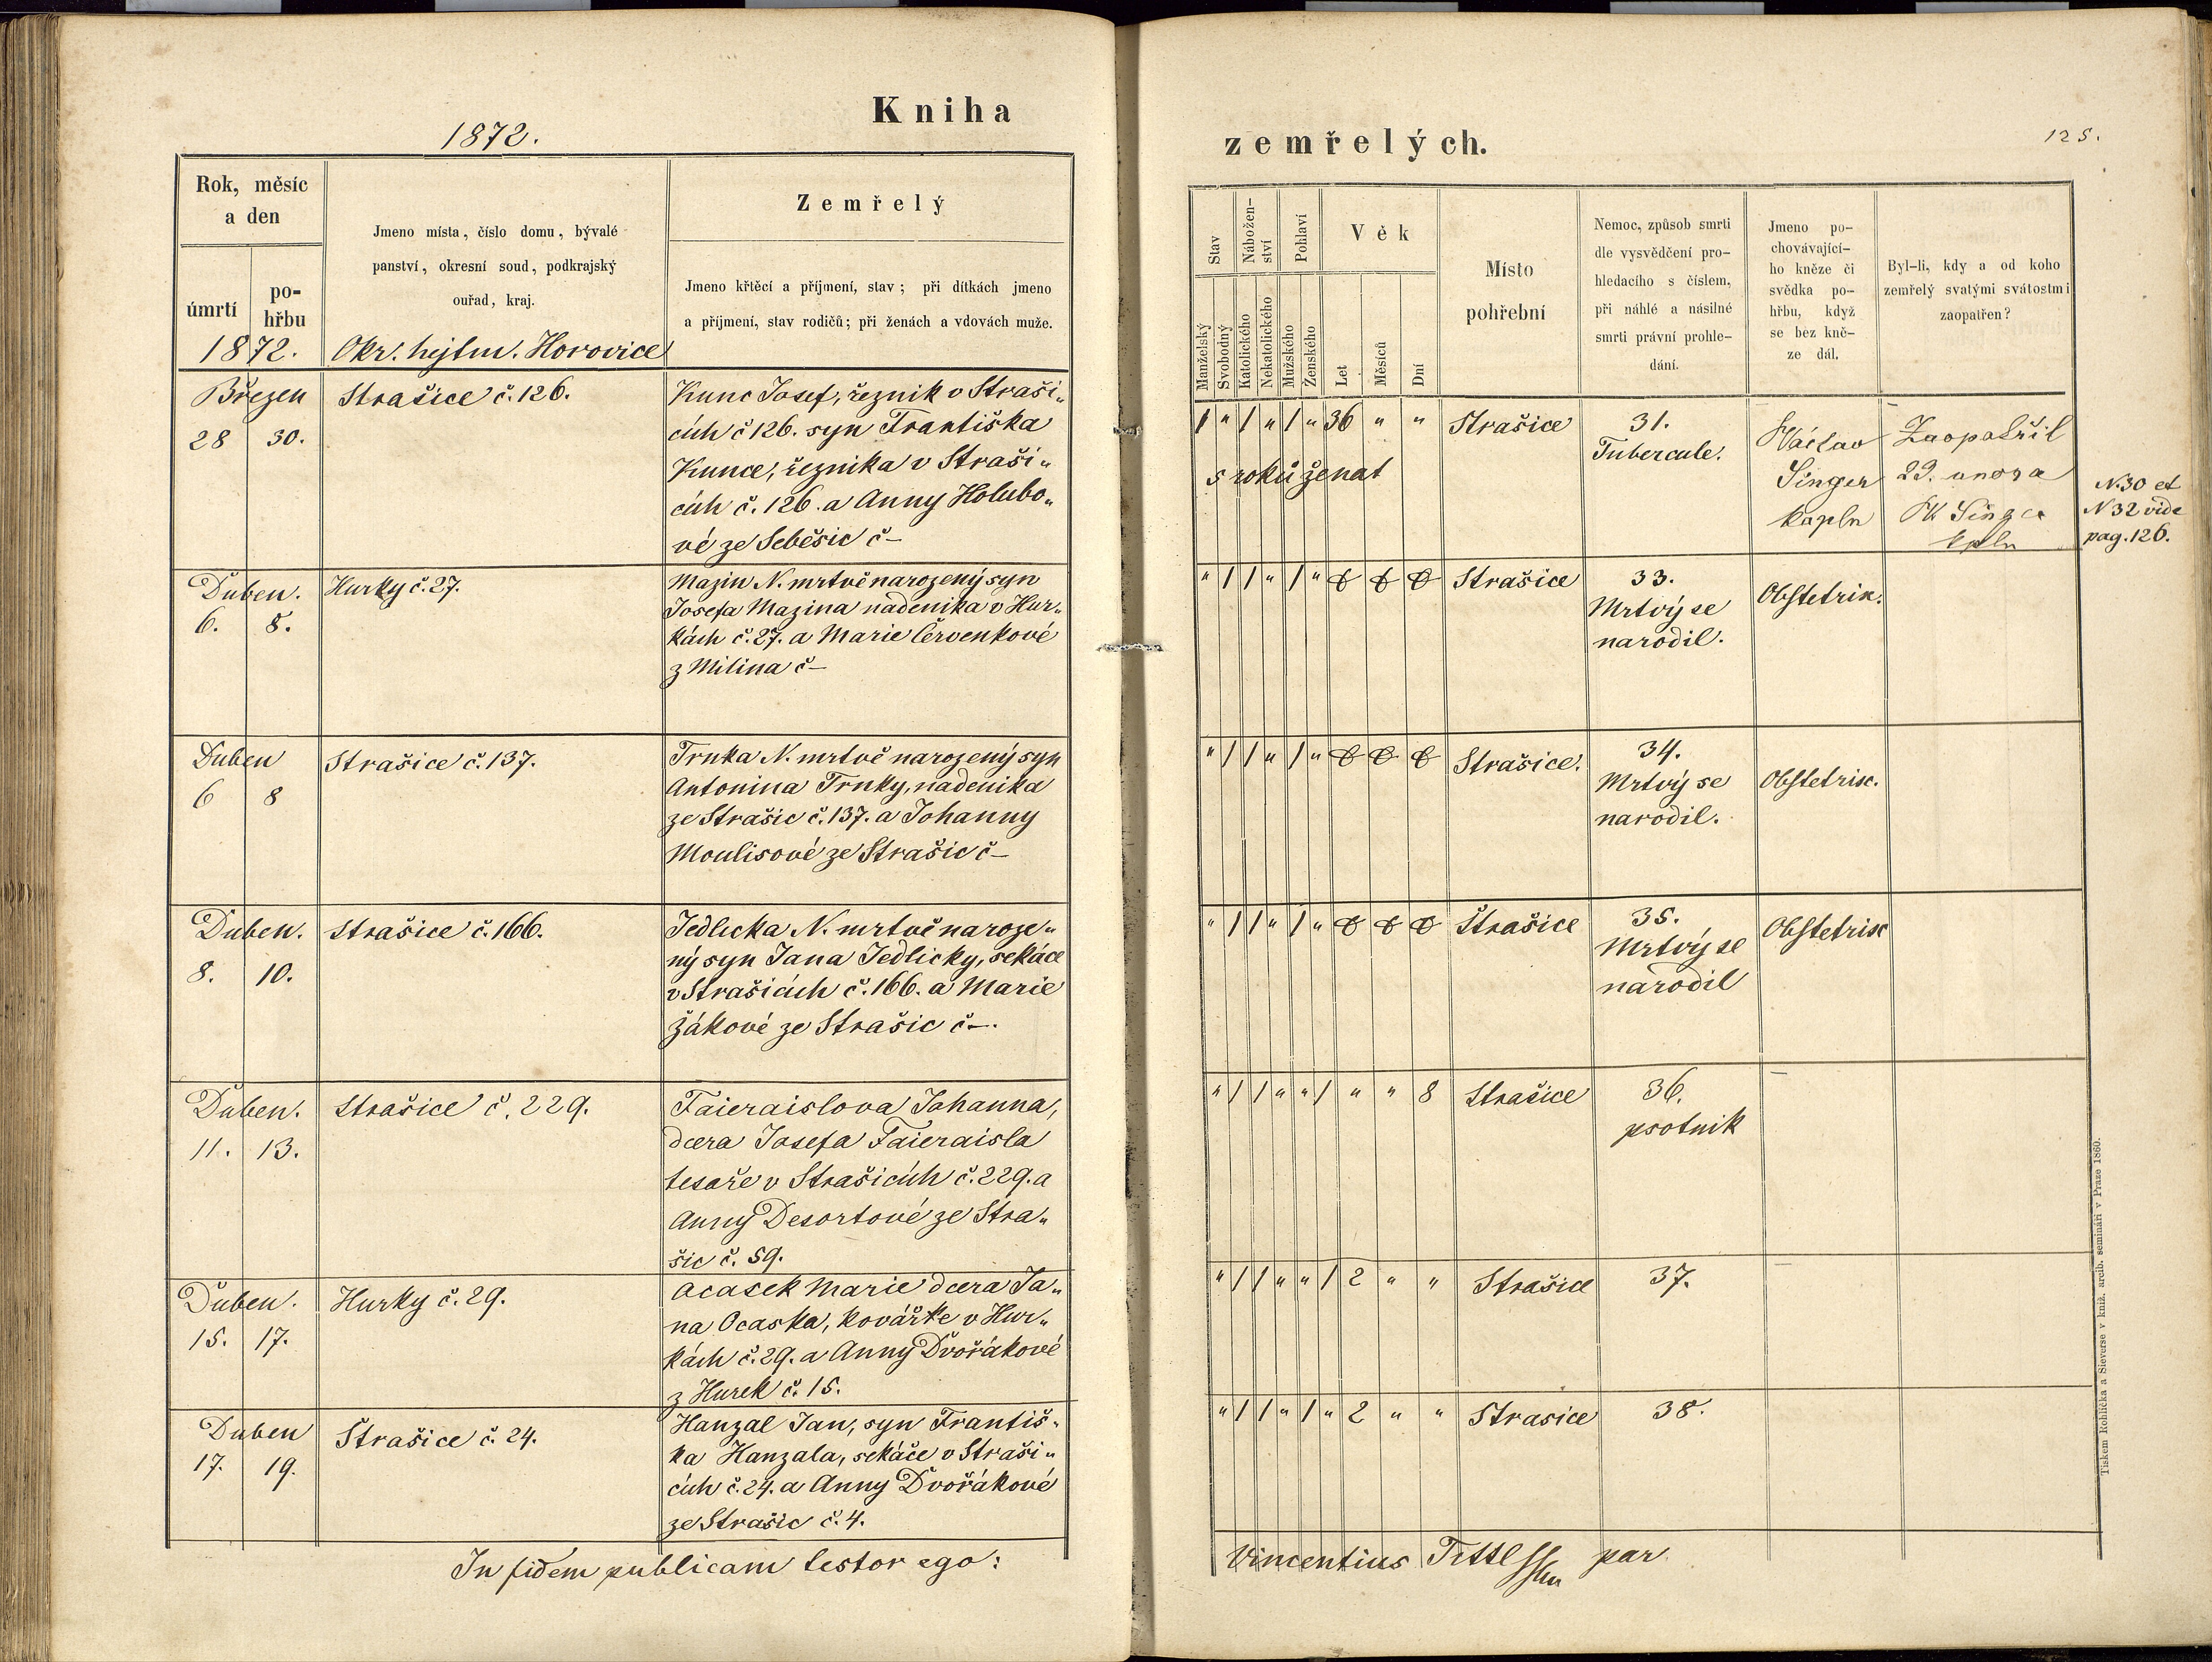 1872.
Kniha
Rok, měsíc
a den
úmrtí
po-
hřbu
Jmeno místa, číslo domu, bývalé
panství, okresní soud, podkrajský
ouřad, kraj.
Zemřelý
Jmeno křtěcí a příjmení, stav; při dítkách jmeno
a příjmení, stav rodičů; při ženách a vdovách muže.
1872.
Okr. hejtm. Horovice
Březen
28 30.
Strašice č. 126.
Kunc Josef, řezník v Straši„
cích č 126. syn Františka
Kunce, řezníka v Straši„
cích č. 126. a Anny Holubo„
vé ze Seběšic č –
Duben.
6. 8.
Hurky č. 27.
Mazin N. mrtvě narozený syn
Josefa Mazina nadenika v Hur„
kách č. 27. a Marie Červenkové
z Milina č –
Duben
6 8
Strašice č. 137.
Trnka N. mrtvě narozený syn
Antonina Trnky, nadenika
ze Strašic č. 137. a Johanny
Moulisové ze Strašic č –
Duben.
8. 10.
Strašice č. 166.
Jedlicka N. mrtvě naroze„
ný syn Jana Jedlicky, sekáče
v Strašicích č. 166. a Marie
Žákové ze Strašic č –.
Duben.
11. 13.
Strašice č. 229.
Faieraislova Johanna,
dcera Josefa Faieraisla
tesaře v Strašicích č. 229. a
Anny Desortové ze Stra„
šic č. 59.
Duben.
15. 17.
Hurky č. 29.
Ocasek Marie dcera Ja„
na Ocaska, kovářke v Hur„
kách č. 29. a Anny Dvořákové
z Hurek č. 15.
Duben
17. 19.
Strašice č. 24.
Hanzal Jan, syn Františ„
ka Hanzala, sekáče v Straši„
cích č. 24. a Anny Dvořákové
ze Strašic č. 4.
In fidem publicam testor ego:
zemřelých.
125.
Stav
Nábožen-
ství
Pohlaví
Věk
Manželský
Svobodný
Katolického
Nekatolického
Mužského
Ženského
Let
Měsíců
Dní
Místo
pohřební
Nemoc, způsob smrti
dle vysvědčení pro-
hledacího s číslem,
při náhlé a násilné
smrti právní prohle-
dání.
Jmeno po-
chovávající-
ho kněze či
svědka po-
hřbu, když
se bez kně-
ze dál.
Byl-li, kdy a od koho
zemřelý svatými svátostmi
zaopatřen?
1 „ 1 „ 1 „ 36 „ „ Strašice
5 roků ženat
31.
Tubercule.
Václav
Singer
kapln
Zaopatřil
29. unora
N.30 et
N 32 vide
pag. 126.
„ 1 1 „ 1 „ 0 0 0 Strašice
33.
Mrtvý se
narodil.
Obstetrix.
„ 1 1 „ 1 „ 0 0 0 Strašice.
34.
Mrtvý se
narodil.
Obstetrix.
„ 1 1 „ 1 „ 0 0 0 Strašice
35.
Mrtvý se
narodil
Obstetrix
„ 1 1 „ „ 1 „ „ 8 Strašice
36.
psotnik
„ 1 1 „ „ 1 2 „ „ Strašice 37.
„ 1 1 „ 1 „ 2 „ „ Strasice 38.
Vincentius par.
Tiskem Rohlíčka a Sieverse v kníž. arcib. semináři v Praze 1860.